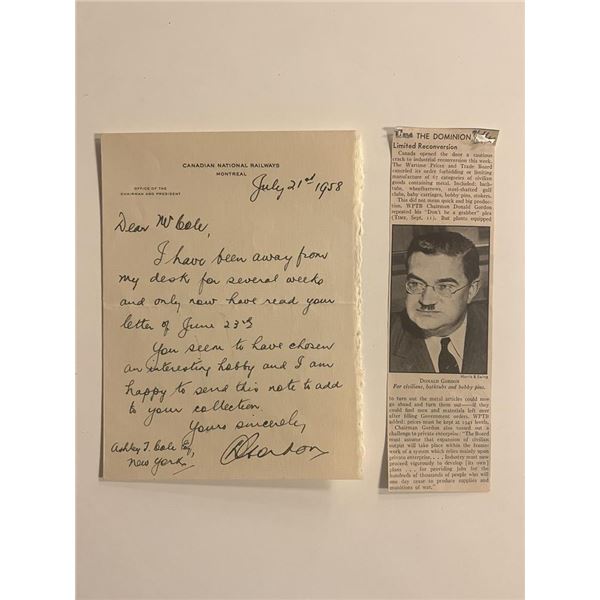 CANADIAN NATIONAL RAILWAYS
MONTREAL
OFFICE OF THE
CHAIRMAN AND PRESIDENT
July 21st 1958
Dear Mr Cole,
I have been away from
my desk for several weeks
and only now have read your
letter of June 23rd
You seem to have chosen
an interesting hobby and I am
happy to send this note to add
to your collection.
Yours sincerely,
DGordon
Ashley T. Cole Esq,
New York
THE DOMINION
Limited Reconversion
Canada opened the door a cautious
crack to industrial reconversion this week.
The Wartime Prices and Trade Board
canceled its order forbidding or limiting
manufacture of 67 categories of civilian
goods containing metal. Included: bath-
tubs, wheelbarrows, steel-shafted golf
clubs, baby carriages, bobby pins, stokers.
This did not mean quick and big produc-
tion, WPTB Chairman Donald Gordon
repeated his "Don't be a grabber" plea
(TIME, Sept. 11). But plants equipped
Harris & Ewing
DONALD GORDON
For civilians, bathtubs and bobby pins.
to turn out the metal articles could now
go ahead and turn them out—if they
could find men and materials left over
after filling Government orders. WPTB
added: prices must be kept at 1941 levels.
Chairman Gordon also tossed out a
challenge to private enterprise: "The Board
must assume that expansion of civilian
output will take place within the frame-
work of a system which relies mainly upon
private enterprise. . . . Industry must now
proceed vigorously to develop [its own]
plans . . . for providing jobs for the
hundreds of thousands of people who will
one day cease to produce supplies and
munitions of war."